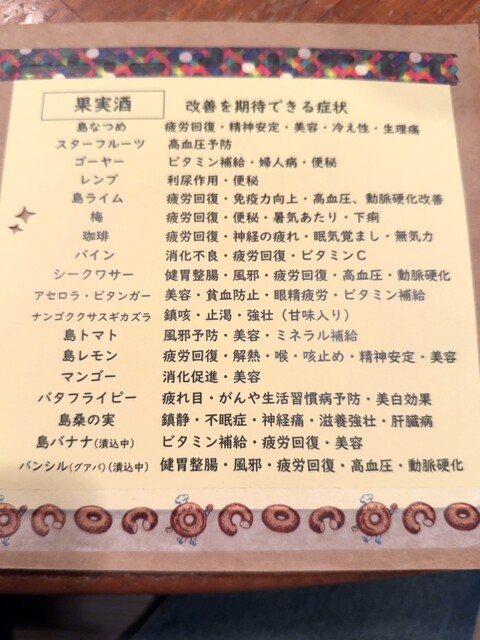 果実酒 改善を期待できる症状
島なつめ 疲労回復・精神安定・美容・冷え性・生理痛
スターフルーツ 高血圧予防
ゴーヤー ビタミン補給・婦人病・便秘
レンブ 利尿作用・便秘
島ライム 疲労回復・免疫力向上・高血圧、動脈硬化改善
梅 疲労回復・便秘・暑気あたり・下痢
珈琲 疲労回復・神経の疲れ・眠気覚まし・無気力
パイン 消化不良・疲労回復・ビタミンC
シークワサー 健胃整腸・風邪・疲労回復・高血圧・動脈硬化
アセロラ・ピタンガー 美容・貧血防止・眼精疲労・ビタミン補給
ナンゴククサスギカズラ 鎮咳・止渇・強壮（甘味入り）
島トマト 風邪予防・美容・ミネラル補給
島レモン 疲労回復・解熱・喉・咳止め・精神安定・美容
マンゴー 消化促進・美容
バタフライピー 疲れ目・がんや生活習慣病予防・美白効果
島桑の実 鎮静・不眠症・神経痛・滋養強壮・肝臓病
島バナナ(漬込中) ビタミン補給・疲労回復・美容
バンシル(グアバ)(漬込中) 健胃整腸・風邪・疲労回復・高血圧・動脈硬化